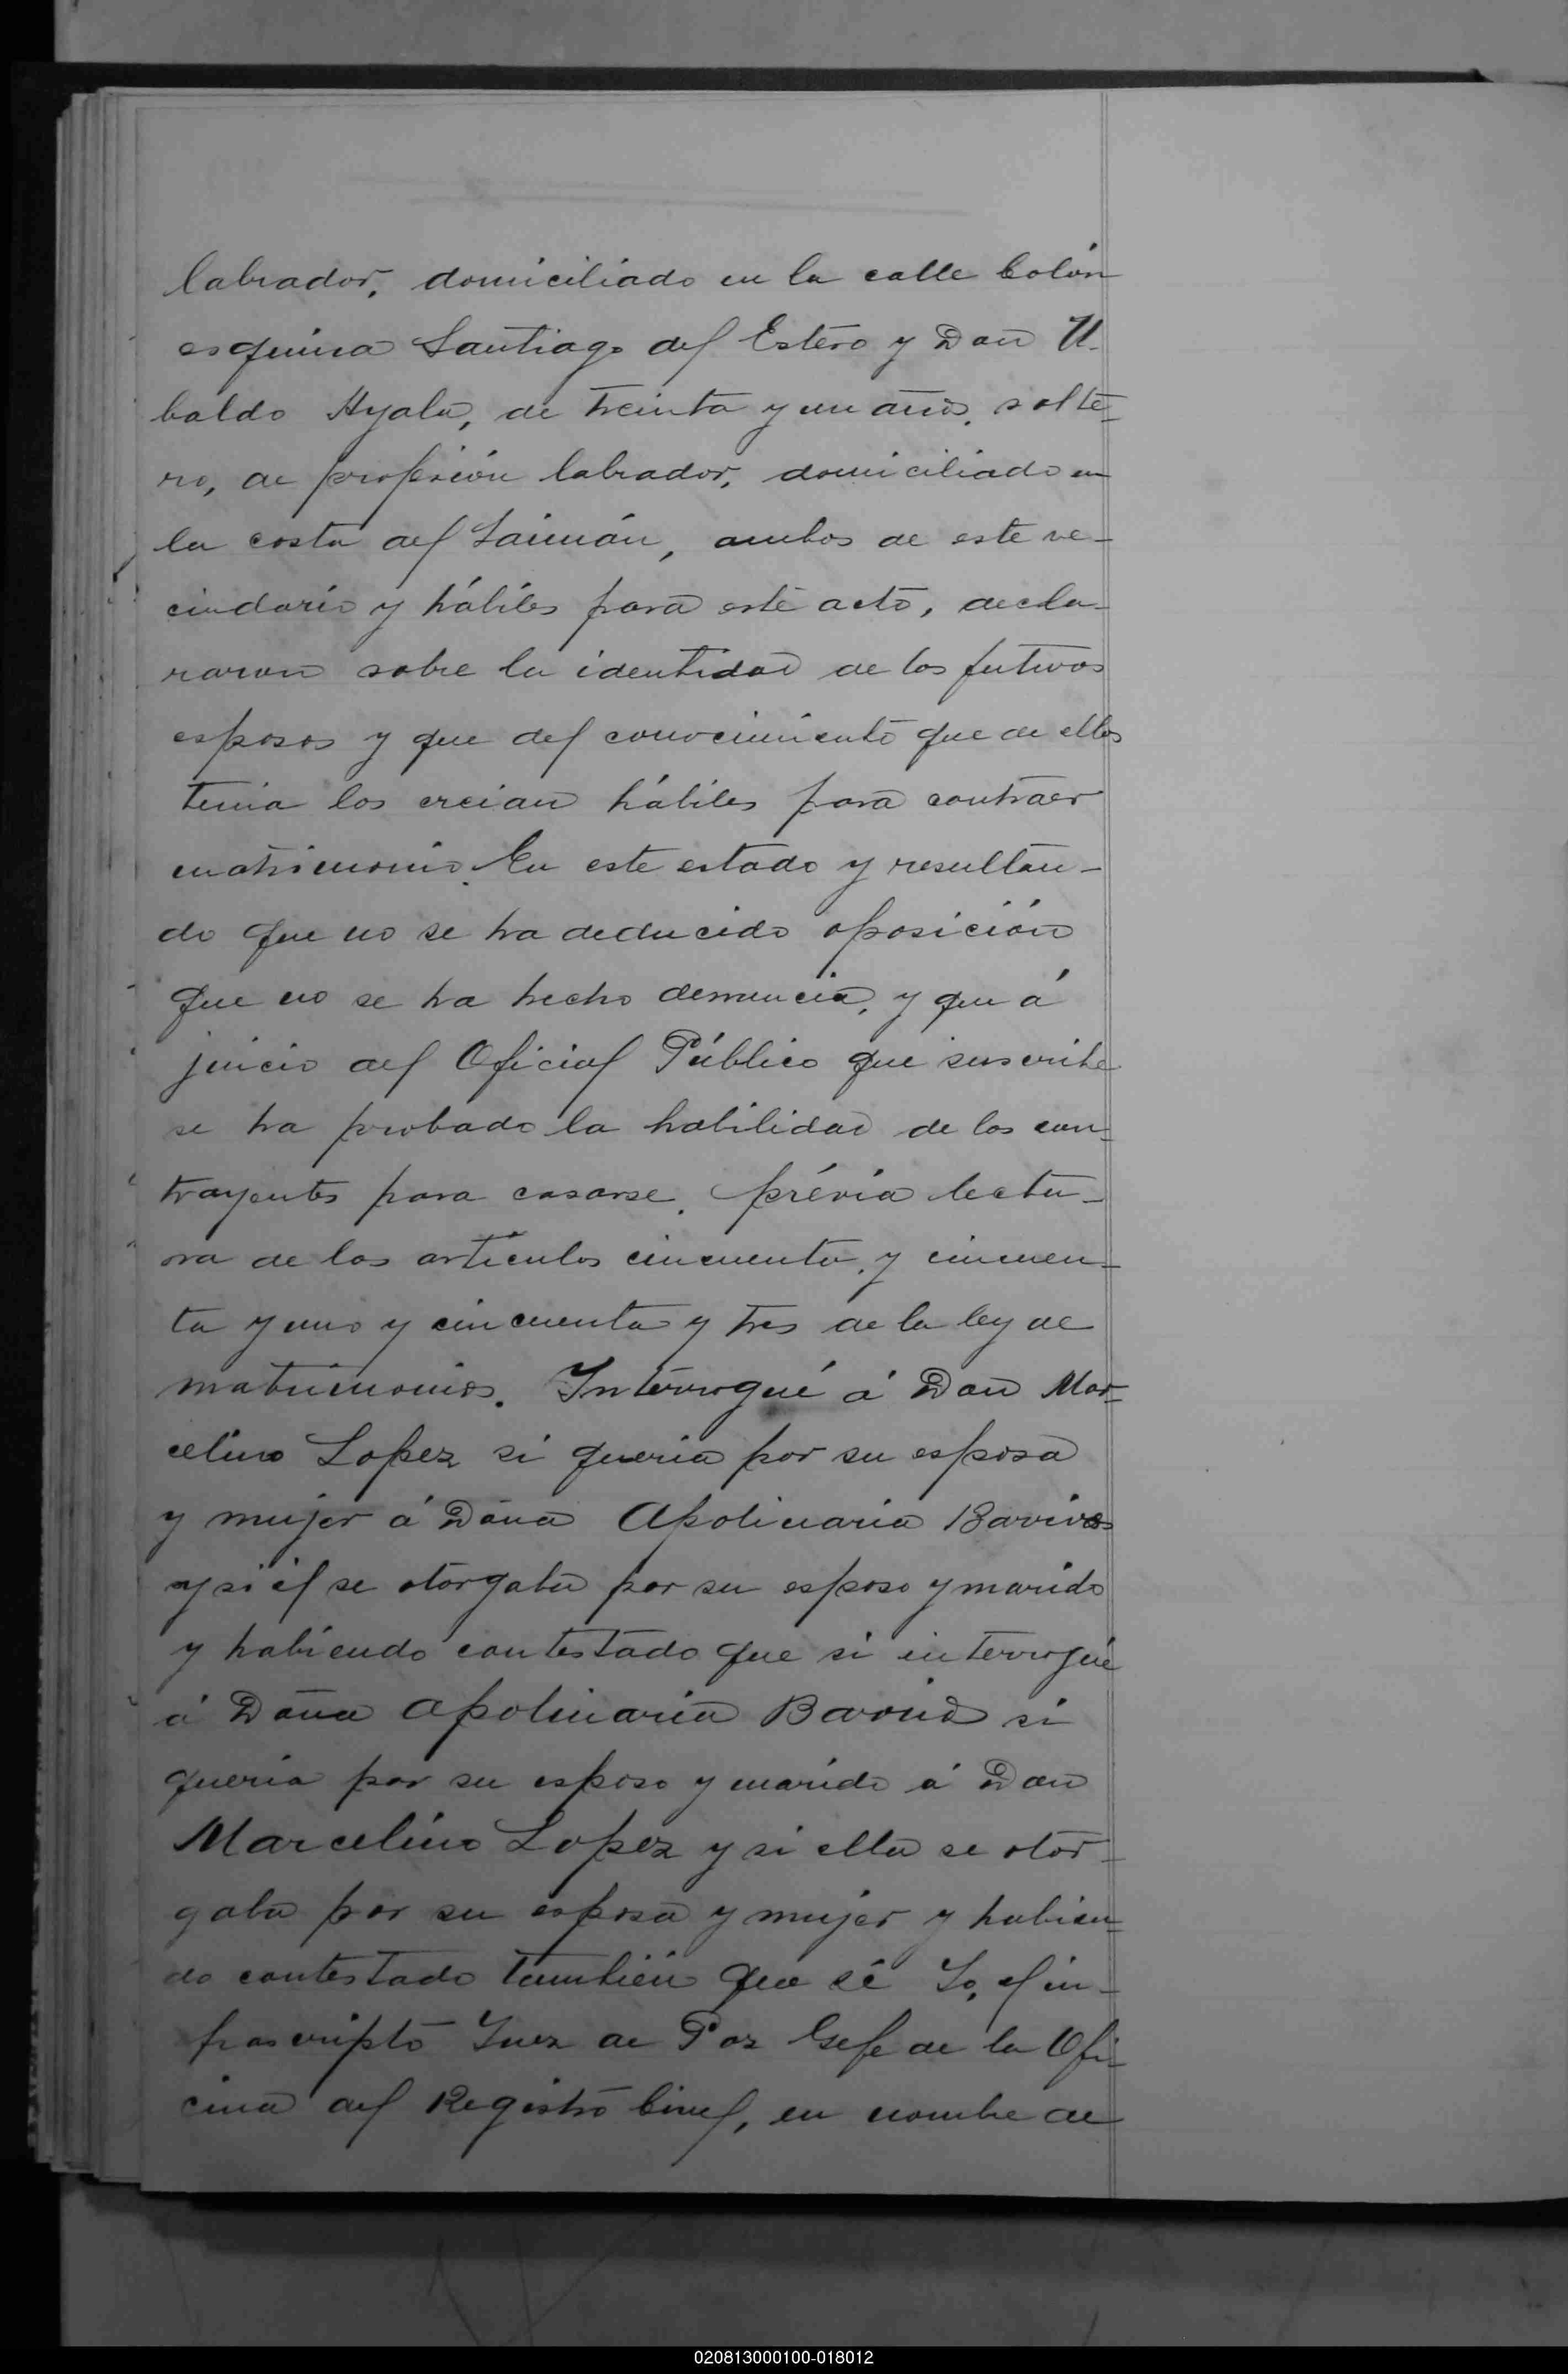 labrador, domiciliado en la calle Colón
esquina Santiago del Estero y Don U-
baldo Ayala, de treinta y un años, solte-
ro, de profesión labrador, domiciliado en
la costa del Saimán, ambos de este ve-
cindario y hábiles para este acto, decla-
raron sobre la identidad de los futuros
esposos y que del conocimiento que de ellos
tenia los creian hábiles para contraer
matrimonio. En este estado y resultan-
do que no se ha deducido oposición
que no se ha hecho denuncia, y que á
juicio del Oficial Público que suscribe
se ha probado la habilidad de los con-
trayentes para casarse, prévia lectu-
ra de los artículos cincuenta, y cincuen-
ta y uno y cincuenta y tres de la ley de
matrimonios. Interrogué á Don Mar-
celino Lopez si queria por su esposa
y mujer á Doña Apolinaria
y si él se otorgaba por su esposo y marido
y habiendo contestado que si interrogué
á Doña Apolinaria si
queria por su esposo y marido á Don
Marcelino Lopez y si ella se otor-
gaba por su esposa y mujer y habien-
do contestado también que sí Yo, el in-
frascripto Juez de Paz Gefe de la Ofi-
cina del Registro Civil, en nombre de
020813000100-018012